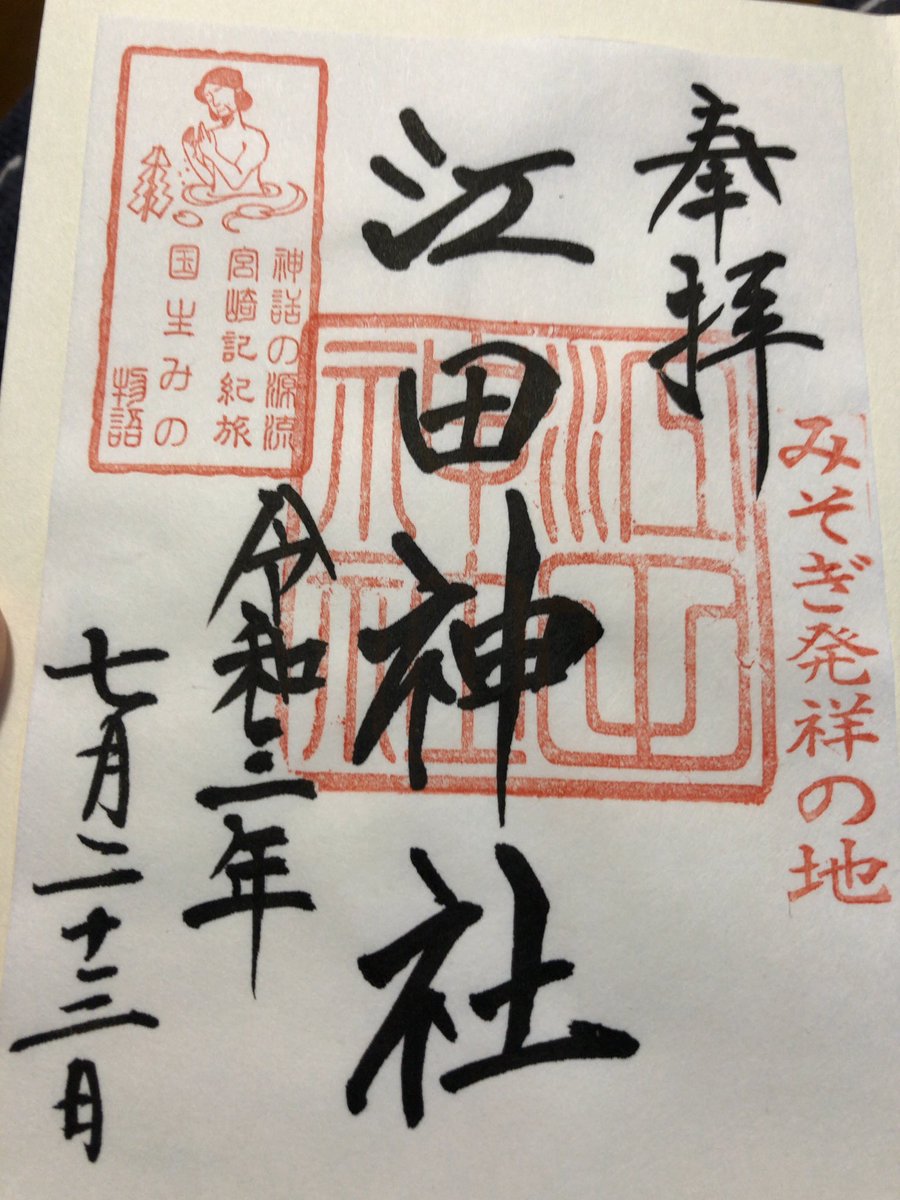 奉拝
みそぎ発祥の地
江田神社
江田神社
令和三年
七月二十三日
神話の源流
宮崎記紀旅
国生みの
物語